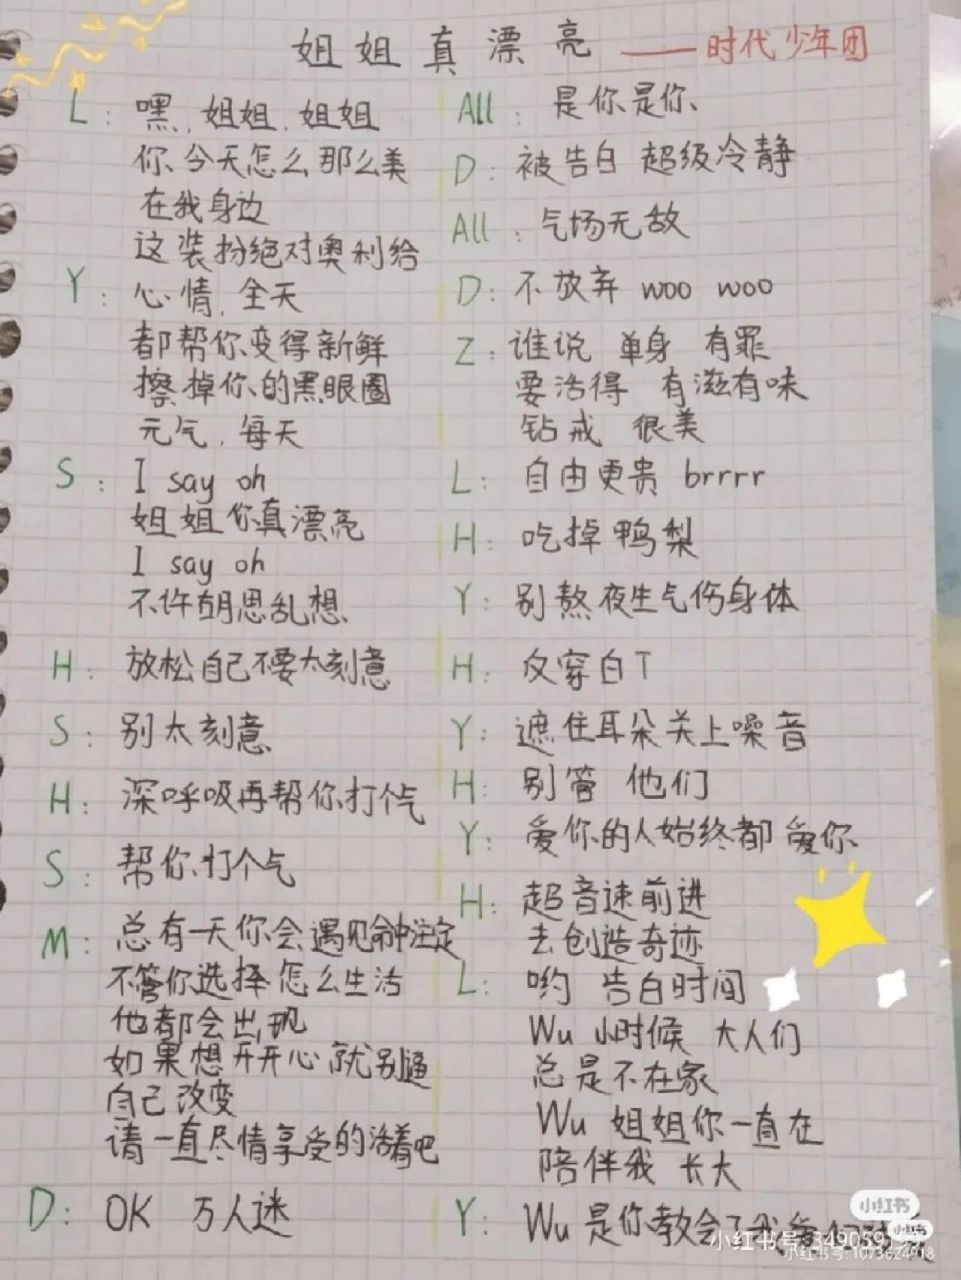 姐姐真漂亮 ——时代少年团
L: 嘿, 姐姐, 姐姐
你今天怎么那么美
在我身边
这装扮绝对奥利给
Y: 心情, 全天
都帮你变得新鲜
擦掉你的黑眼圈
元气, 每天
S: I say oh
姐姐你真漂亮
I say oh
不许胡思乱想
H: 放松自己不要太刻意
S: 别太刻意
H: 深呼吸再帮你打个气
S: 帮你打个气
M: 总有一天你会遇见命中注定
不管你选择怎么生活
他都会出现
如果想开开心就别逼
自己改变
请一直尽情享受的活着吧
D: OK 万人迷
All: 是你是你
D: 被告白 超级冷静
All: 气场无敌
D: 不放弃 woo woo
Z: 谁说 单身 有罪
要活得 有滋有味
钻戒 很美
L: 自由更贵 brrrr
H: 吃掉鸭梨
Y: 别熬夜生气伤身体
H: 仅穿白T
Y: 遮住耳朵关上噪音
H: 别管 他们
Y: 爱你的人始终都爱你
H: 超音速前进
去创造奇迹
L: 哟 告白时间
Wu 小时候 大人们
总是不在家
Wu 姐姐你一直在
陪伴我 长大
Y: Wu 是你教会了我
小红书
小红书
小红书号:1073624918